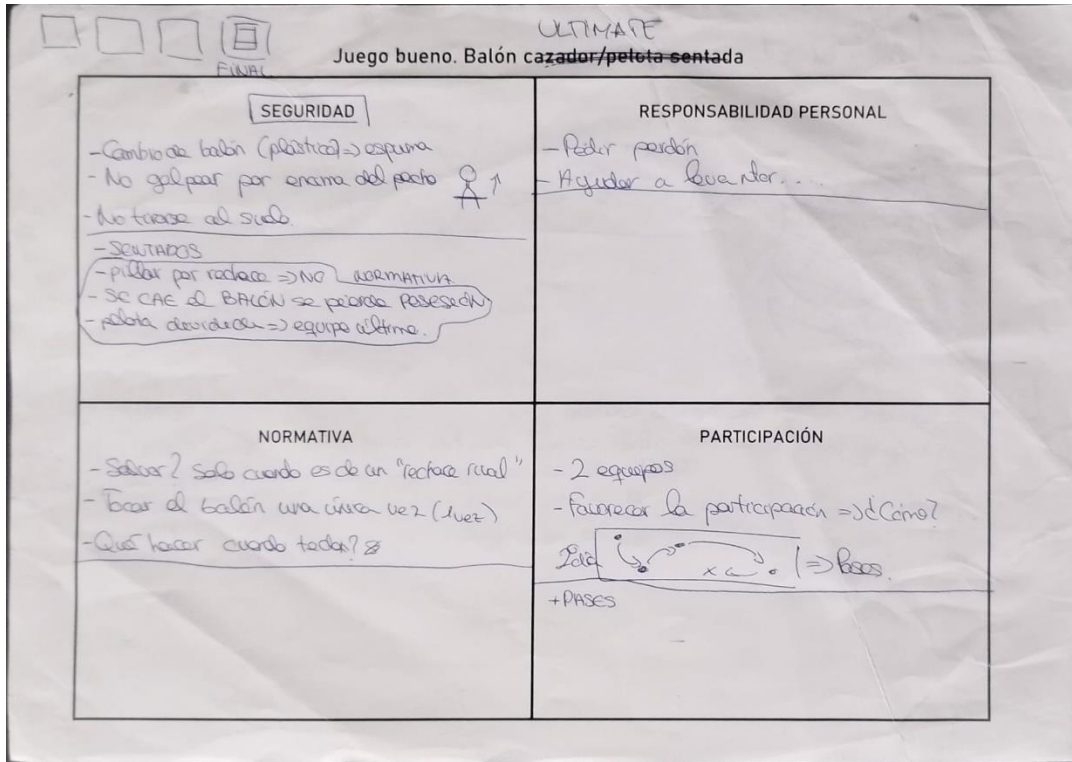 ULTIMATE
FINAL
Juego bueno. Balón cazador/pelota sentada
SEGURIDAD
- Cambio de balón (plástico) => espuma
- No golpear por encima del pecho
- No tirarse al suelo.
- SENTADOS
- pillar por rechace => NO NORMATIVA
- SE CAE el BALÓN se pierde POSESIÓN
- pelota dividida => equipo último.
RESPONSABILIDAD PERSONAL
- Pedir perdón
- Ayudar a levantar...
NORMATIVA
- Salvar? Solo cuando es de un "rechace rival"
- Tocar el balón una única vez (1 vez)
- Qué hacer cuando
PARTICIPACIÓN
- 2 equipos
- Favorecer la participación => ¿Cómo?
=> Pases.
+ PASES